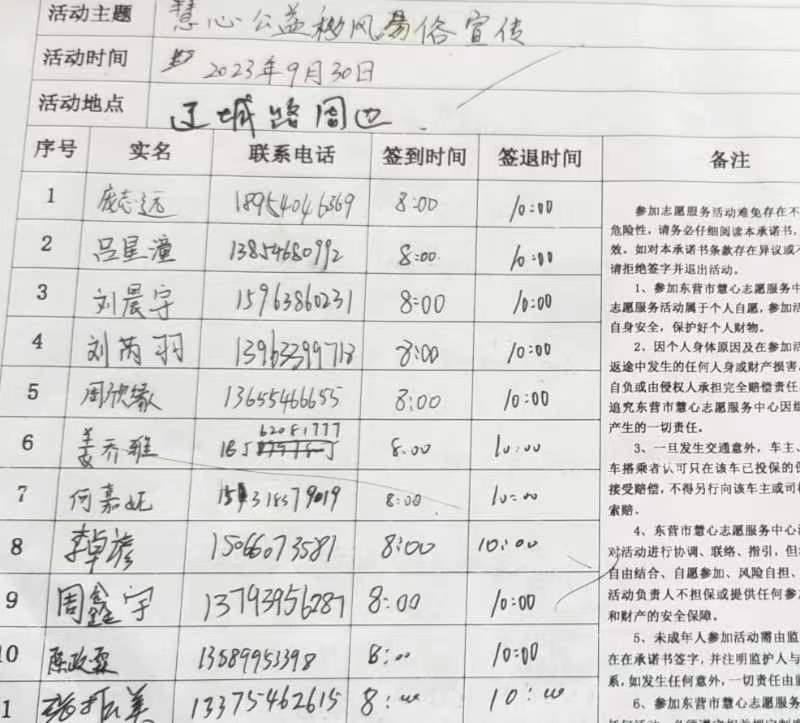 活动主题 慧心公益移风易俗宣传
活动时间 2023年9月30日
活动地点 辽城路周边
序号 实名 联系电话 签到时间 签退时间 备注
1 庞志远 18954046369 8:00 10:00
2 吕星潼 13854680992 8:00 10:00
3 刘晨宇 15963860231 8:00 10:00
4 刘芮羽 13963399718 8:00 10:00
5 周欣缘 13655466655 8:00 10:00
6 姜乔雅 185 62081777 8:00 10:00
7 何嘉妮 8:00 10:00
8 李卓 15066073581 8:00 10:00
9 周鑫宇 13793956287 8:00 10:00
10 陈政霖 13589953398 8:00 10:00
1 13375462615 8:00 10:00
参加志愿服务活动难免存在不
危险性，请务必仔细阅读本承诺书，
效。如对本承诺书条款存在异议或不
请拒绝签字并退出活动。
1、参加东营市慧心志愿服务中
志愿服务活动属于个人自愿，参加活
自身安全，保护好个人财物。
2、因个人身体原因及在参加活
返途中发生的任何人身或财产损害，
自负或由侵权人承担完全赔偿责任
追究东营市慧心志愿服务中心因组
产生的一切责任。
3、一旦发生交通意外，车主、
车搭乘者认可只在该车已投保的
接受赔偿，不得另行向该车主或司
索赔。
4、东营市慧心志愿服务中心
对活动进行协调、联络、指引，但
自由结合、自愿参加、风险自担、
活动负责人不担保或提供任何参
和财产的安全保障。
5、未成年人参加活动需由监
在在承诺书签字，并注明监护人与
系，如发生任何意外，一切责任由监
6、参加东营市慧心志愿服务